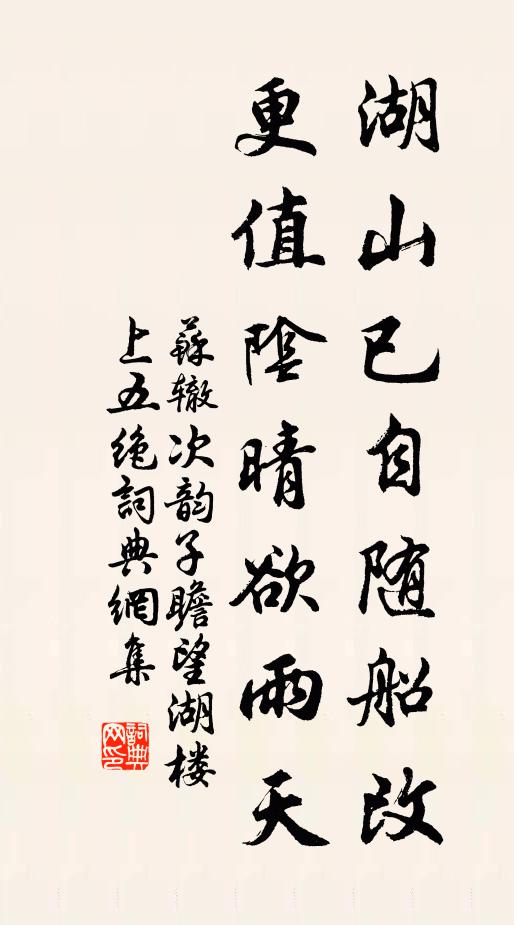 湖山已自随船改
更值陰晴欲雨天
蘇辙次韵子瞻望湖楼
上五绝詞典網集
詞典
网印